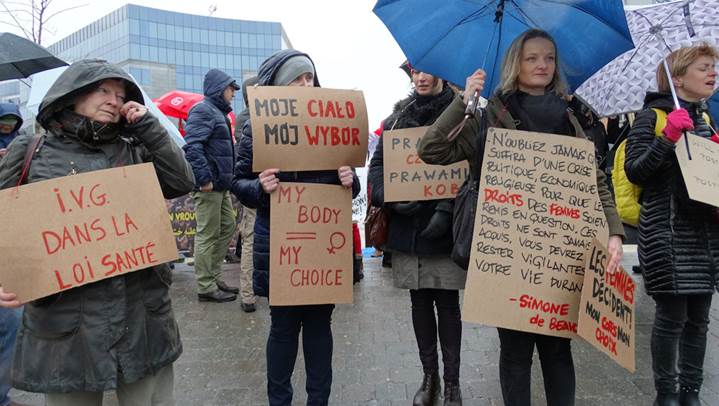 I.V.G.
DANS LA
LOI SANTÉ
MOJE CIAŁO
MÓJ WYBÓR
MY BODY
=
MY
CHOICE
PRAWA
PRAWAMI
KOB
N'OUBLIEZ JAMAIS
SUFFIRA D'UNE CRISE
POLITIQUE, ECONOMIQUE
RELIGIEUSE POUR QUE LES
DROITS DES FEMMES SOIENT
REMIS EN QUESTION. CES
DROITS NE SONT JAMAIS
ACQUIS. VOUS DEVREZ
RESTER VIGILANTES
VOTRE VIE DURANT
- SIMONE
de BEAU
LES
FEMMES
DÉCIDENT!
MON CORPS MON
CHOIX